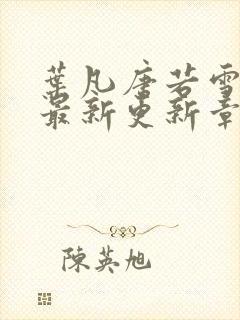 葉凡唐若雪
最新更新章
陳英旭